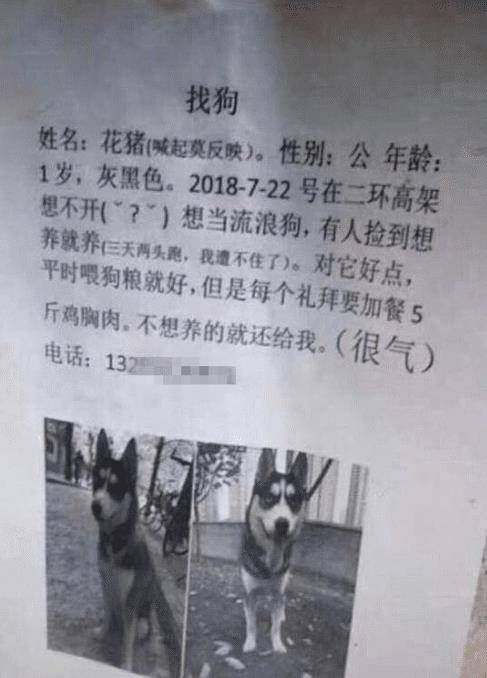 找狗
姓名：花猪(喊起莫反映)。性别：公 年龄：
1岁，灰黑色。2018-7-22 号在二环高架
想不开(ˇ?ˇ) 想当流浪狗，有人捡到想
养就养(三天两头跑，我遭不住了)。对它好点，
平时喂狗粮就好，但是每个礼拜要加餐 5
斤鸡胸肉。不想养的就还给我。（很气）
电话：13